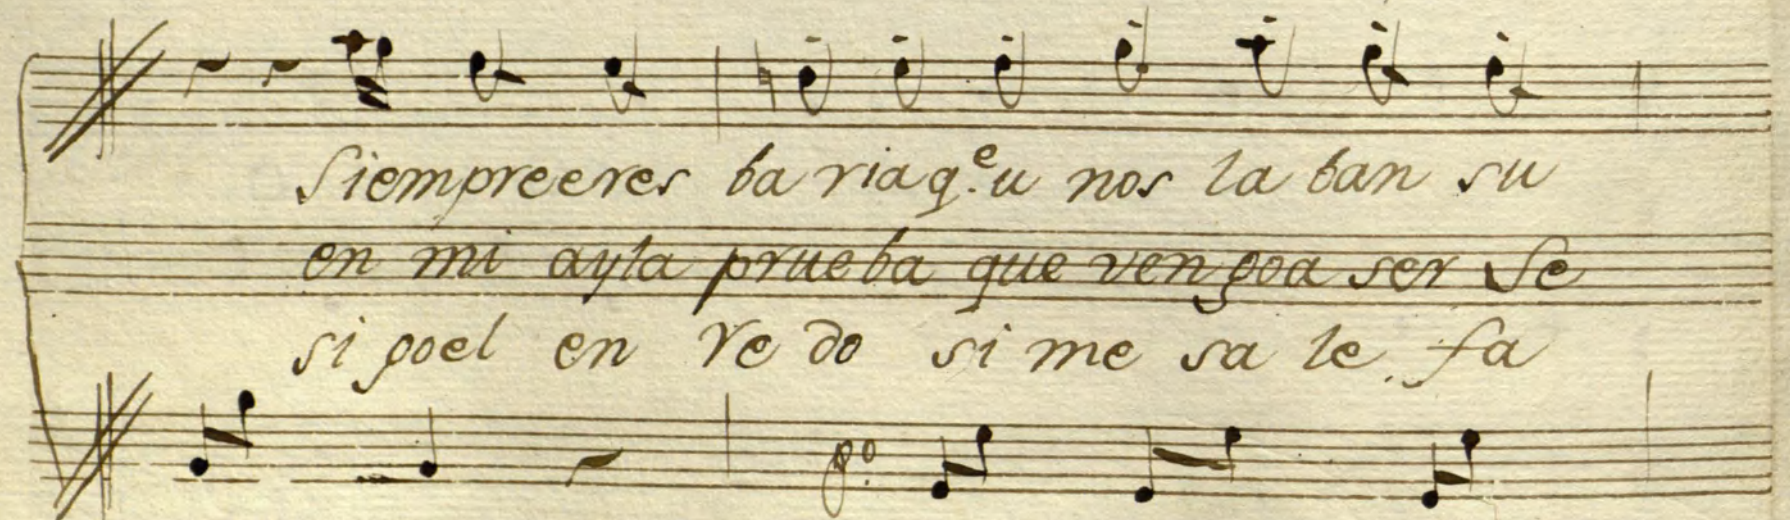 Siempre eres ba ria q.e u nos la ban su
en mi ay la prue ba que ven go a ser Se
si go el en re do si me sa le fa
p.o